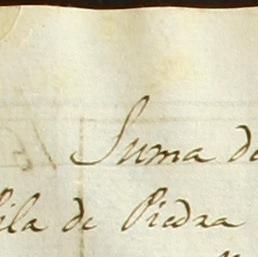 Suma de
ila de Piedra